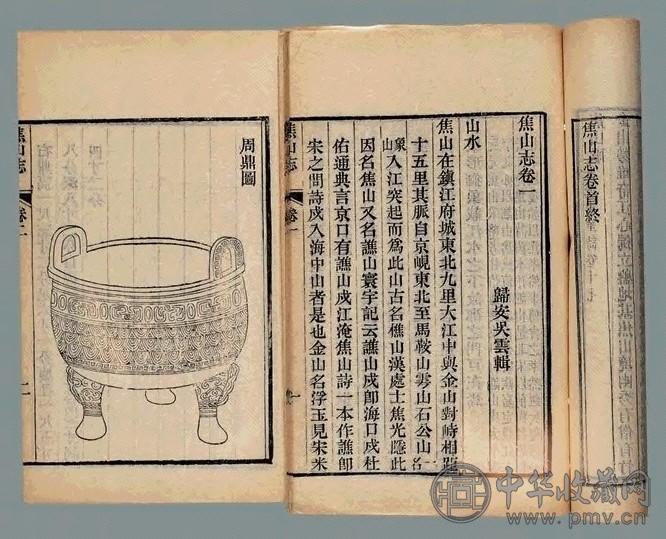 焦山志卷首終
焦山志卷一
歸安吳雲輯
山水
焦山在鎮江府城東北九里大江中與金山對峙相距
十五里其脈自京峴東北至馬鞍山雩山石公山一名
象山入江突起而爲此山古名樵山漢處士焦光隱此
因名焦山又名譙山寰宇記云譙山戍卽海口戍杜
佑通典言京口有譙山戍江淹焦山詩一本作譙卽
宋之問詩戍入海中山者是也金山名浮玉見宋米
焦山志 卷一 一
周鼎圖
焦山志 卷二 二
中华收藏网
www.pmv.cn